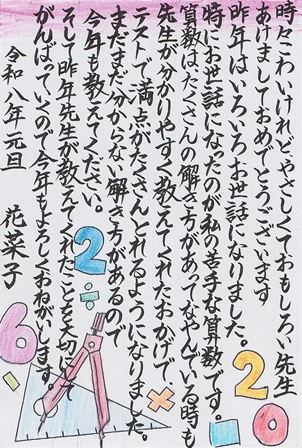 時々こわいけれどやさしくておもしろい先生
あけましておめでとうございます
昨年はいろいろお世話になりました。
特にお世話になったのが私の苦手な算数です。
算数はたくさんの解き方があってなやんでいる時も
先生が分かりやすく教えてくれたおかげで、
テストで満点がたくさんとれるようになりました。
まだまだ分からない解き方があるので
今年も教えてください。
そして昨年先生が教えてくれたことを大切にして
がんばっていくので今年もよろしくおねがいします。
令和八年元旦
花菜子
2
÷
6
÷
×
2
0